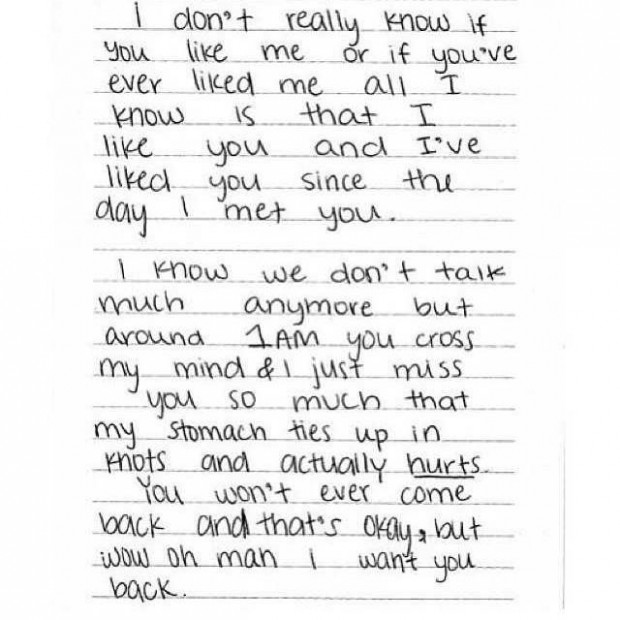 I don't really know if
you like me or if you've
ever liked me all I
know is that I
like you and I've
liked you since the
day I met you.
I know we don't talk
much anymore but
around 1AM you cross
my mind & I just miss
you so much that
my stomach ties up in
knots and actually hurts.
You won't ever come
back and that's okay, but
wow oh man I want you
back.